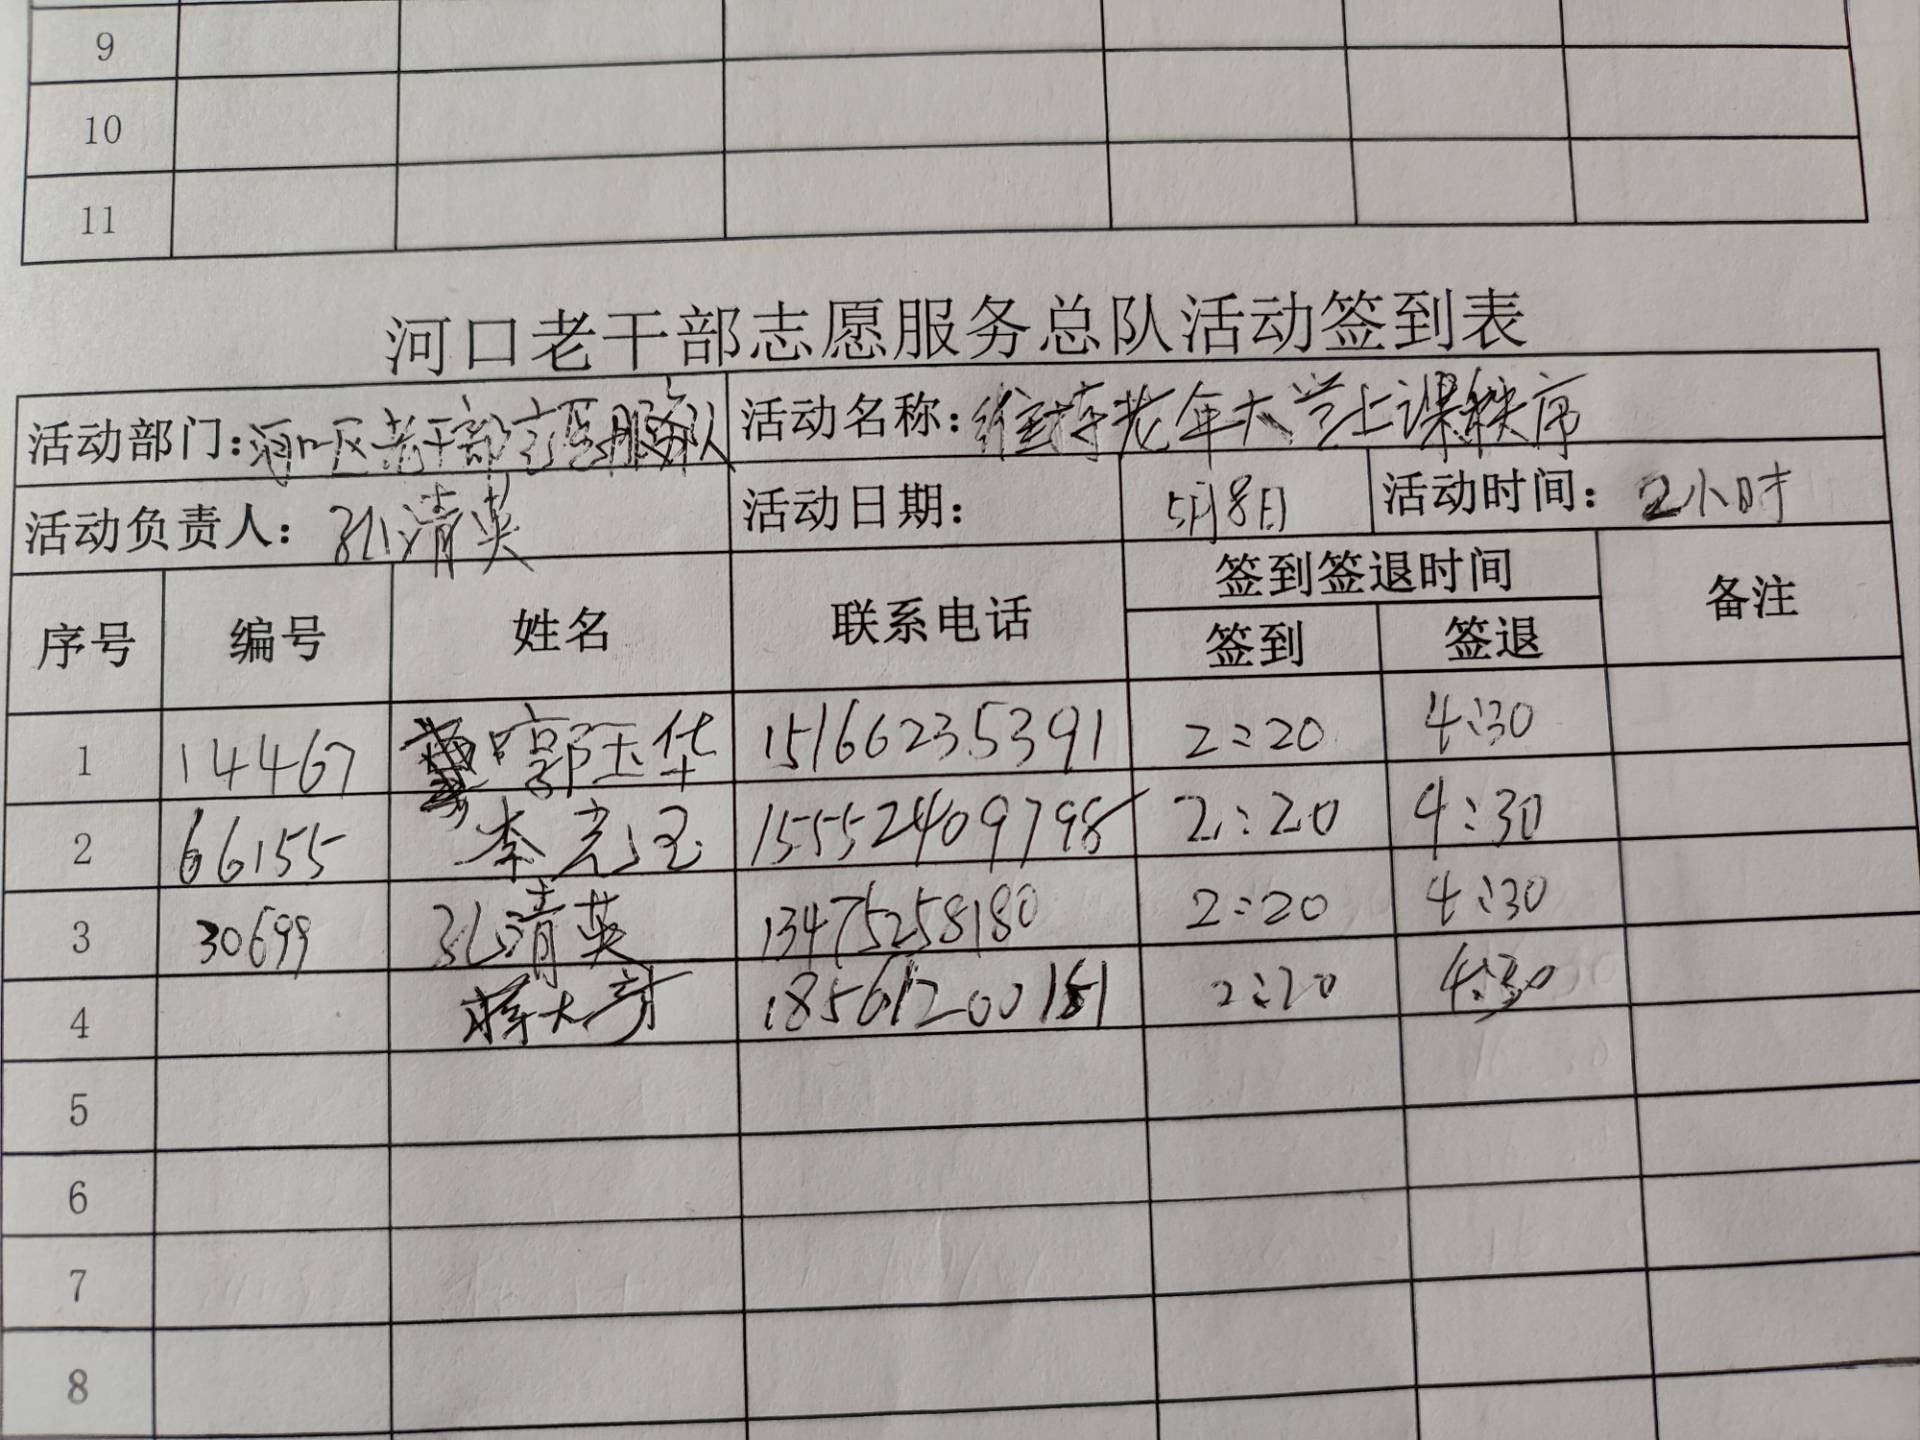 9
10
11
河口老干部志愿服务总队活动签到表
活动部门: 河口区老干部志愿服务队 活动名称: 维持老年大学上课秩序
活动负责人: 孔清英 活动日期: 5月8日 活动时间: 2小时
序号 编号 姓名 联系电话 签到签退时间 备注
签到 签退
1 14467 郭玉华 15166235391 2:20 4:30
2 66155 李 15552409798 2:20 4:30
3 30699 孔清英 13475258180 2:20 4:30
4 2:20 4:30
5
6
7
8